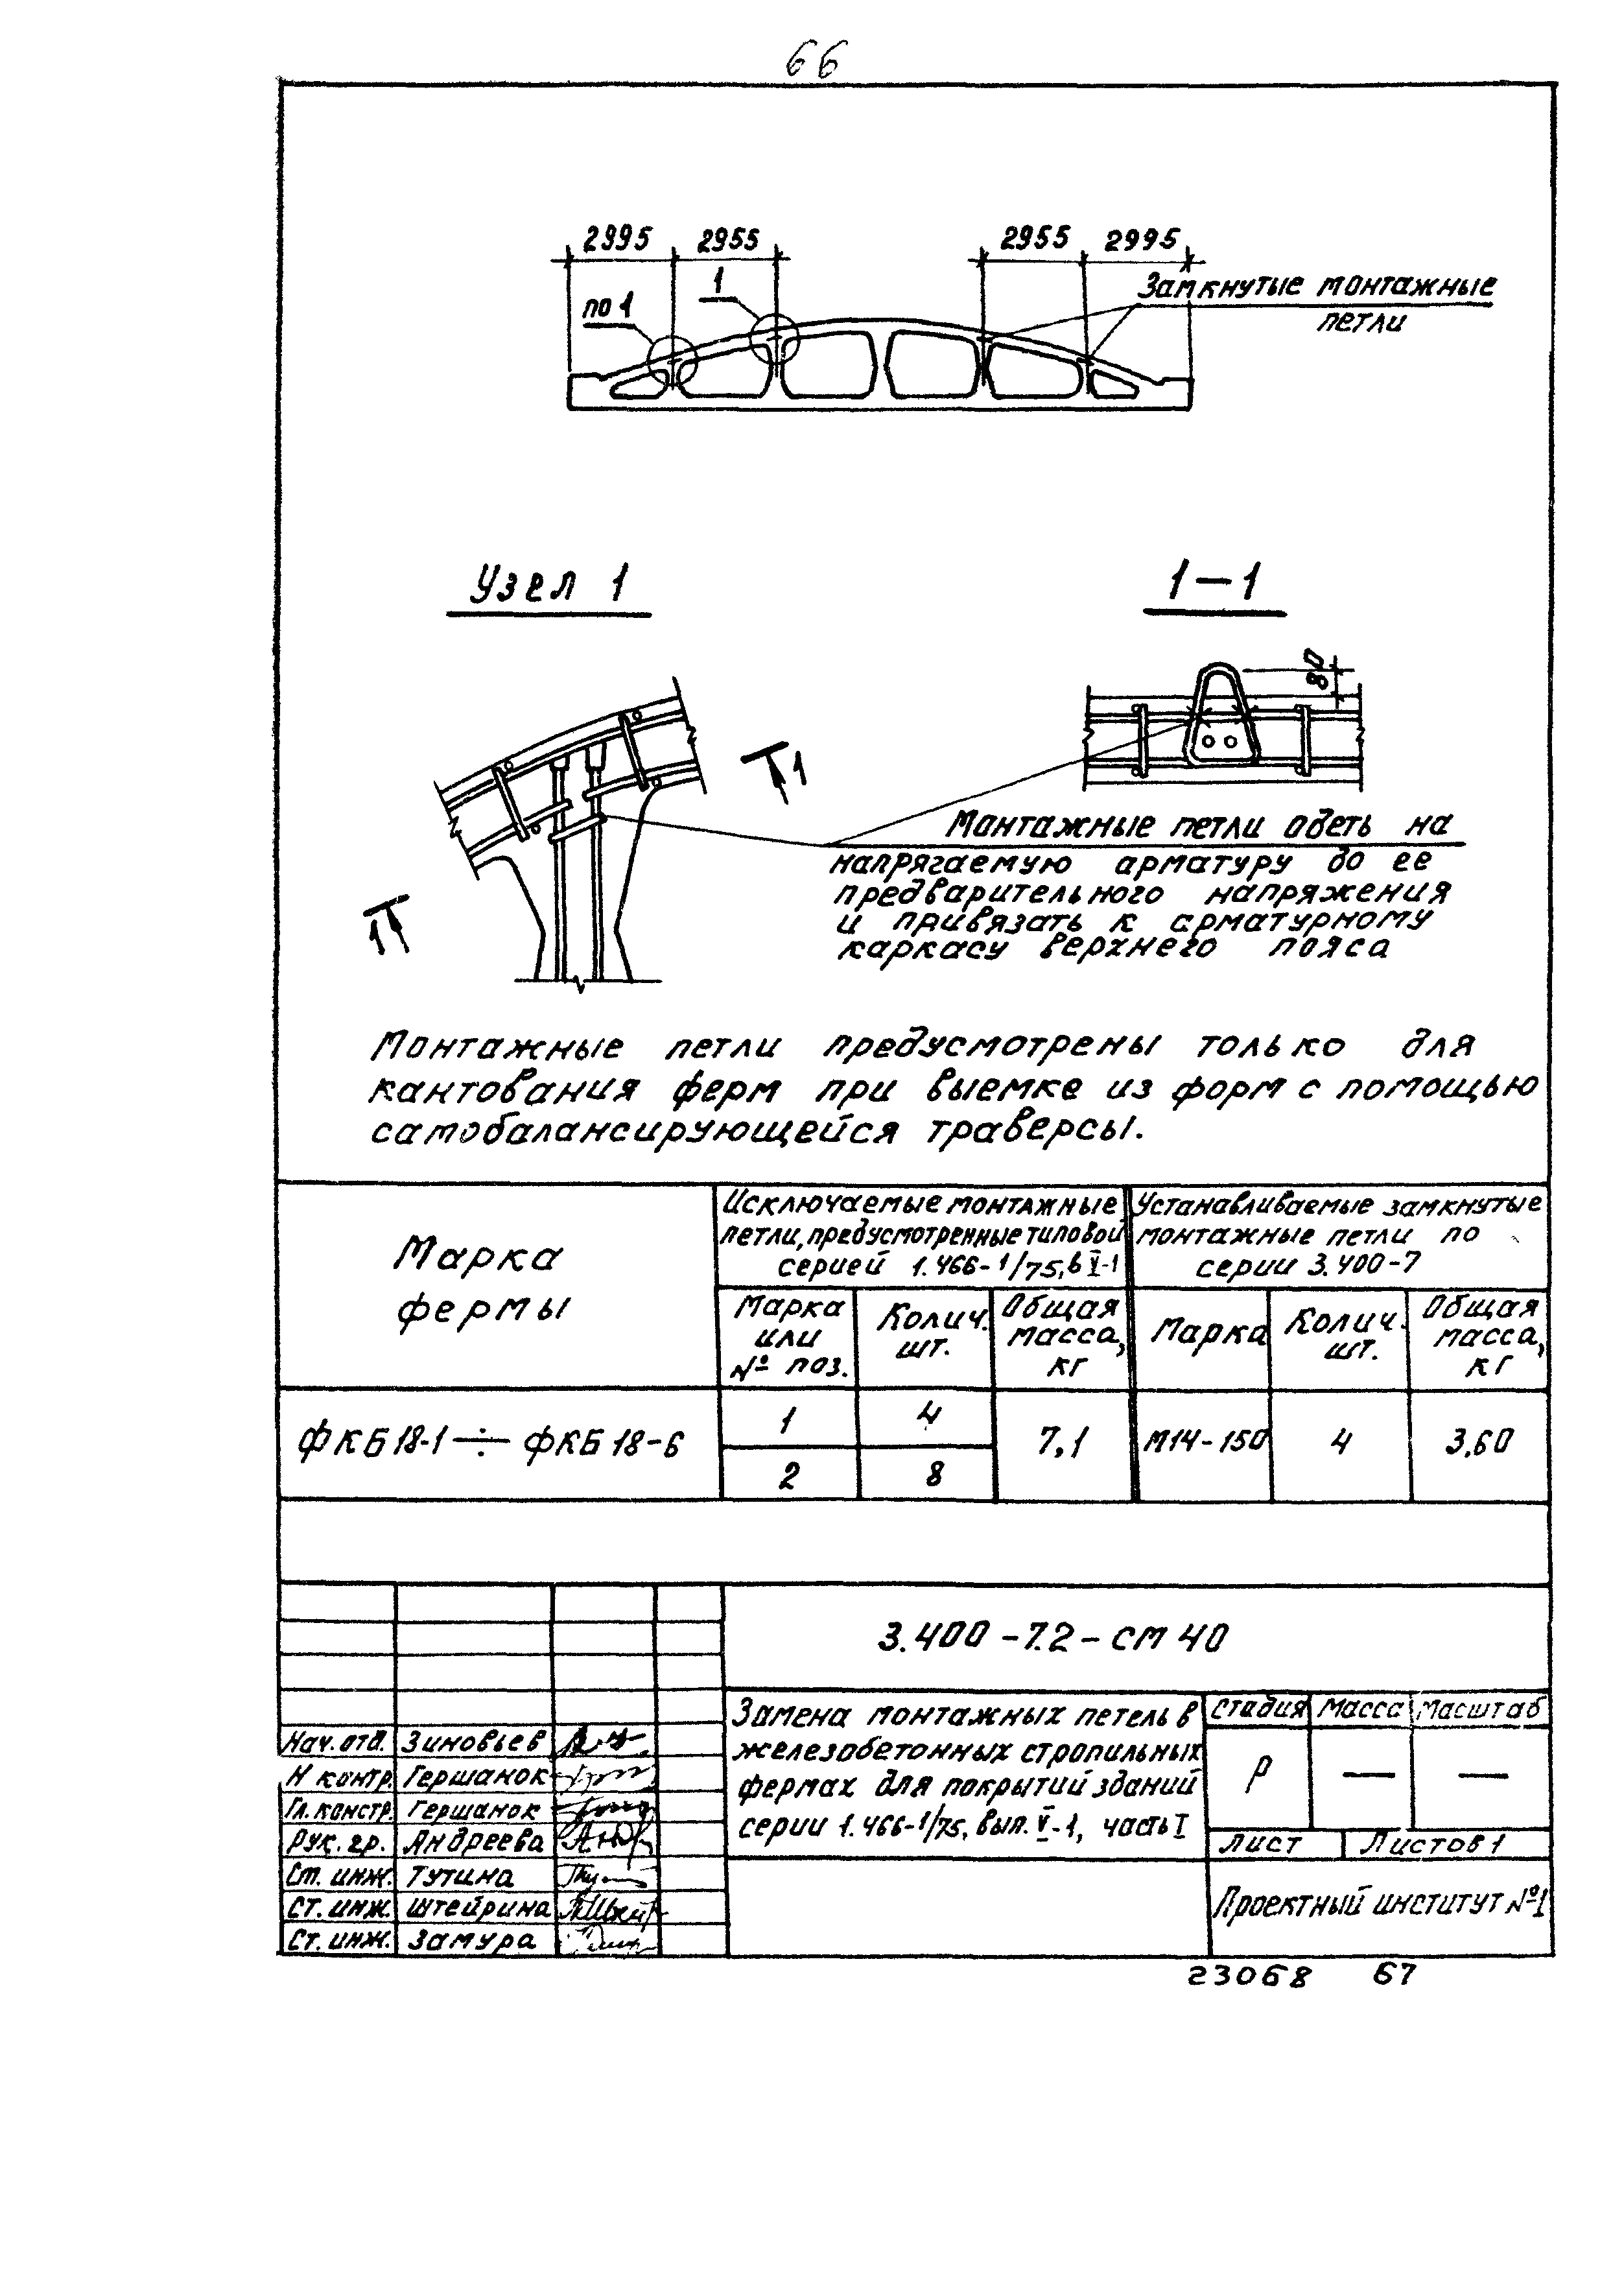 66
2995 2955 2955 2995
1
по 1
Замкнутые монтажные
петли
Узел 1
1-1
80
1
1
Монтажные петли одеть на
напрягаемую арматуру до ее
предварительного напряжения
и привязать к арматурному
каркасу верхнего пояса
Монтажные петли предусмотрены только для
кантования ферм при выемке из форм с помощью
самобалансирующейся траверсы.
Марка
фермы
Исключаемые монтажные
петли, предусмотренные типовой
серией 1.466-1/75, в V-1
Устанавливаемые замкнутые
монтажные петли по
серии 3.400-7
Марка
или
№ поз.
Колич.
шт.
Общая
масса,
кг
Марка
Колич.
шт.
Общая
масса,
кг
ФКБ 18-1 ÷ ФКБ 18-6
1 4
2 8
7,1
М14-150
4
3,60
3.400-7.2-СМ 40
Замена монтажных петель в
железобетонных стропильных
фермах для покрытий зданий
серии 1.466-1/75, вып. V-1, часть I
Стадия Масса Масштаб
Р — —
Лист Листов 1
Проектный институт №1
Нач. отд. Зиновьев
Н контр. Гершанок
Гл. констр. Гершанок
Рук. гр. Андреева
Ст. инж. Тутина
Ст. инж. Штейрина
Ст. инж. Замура
23068 67